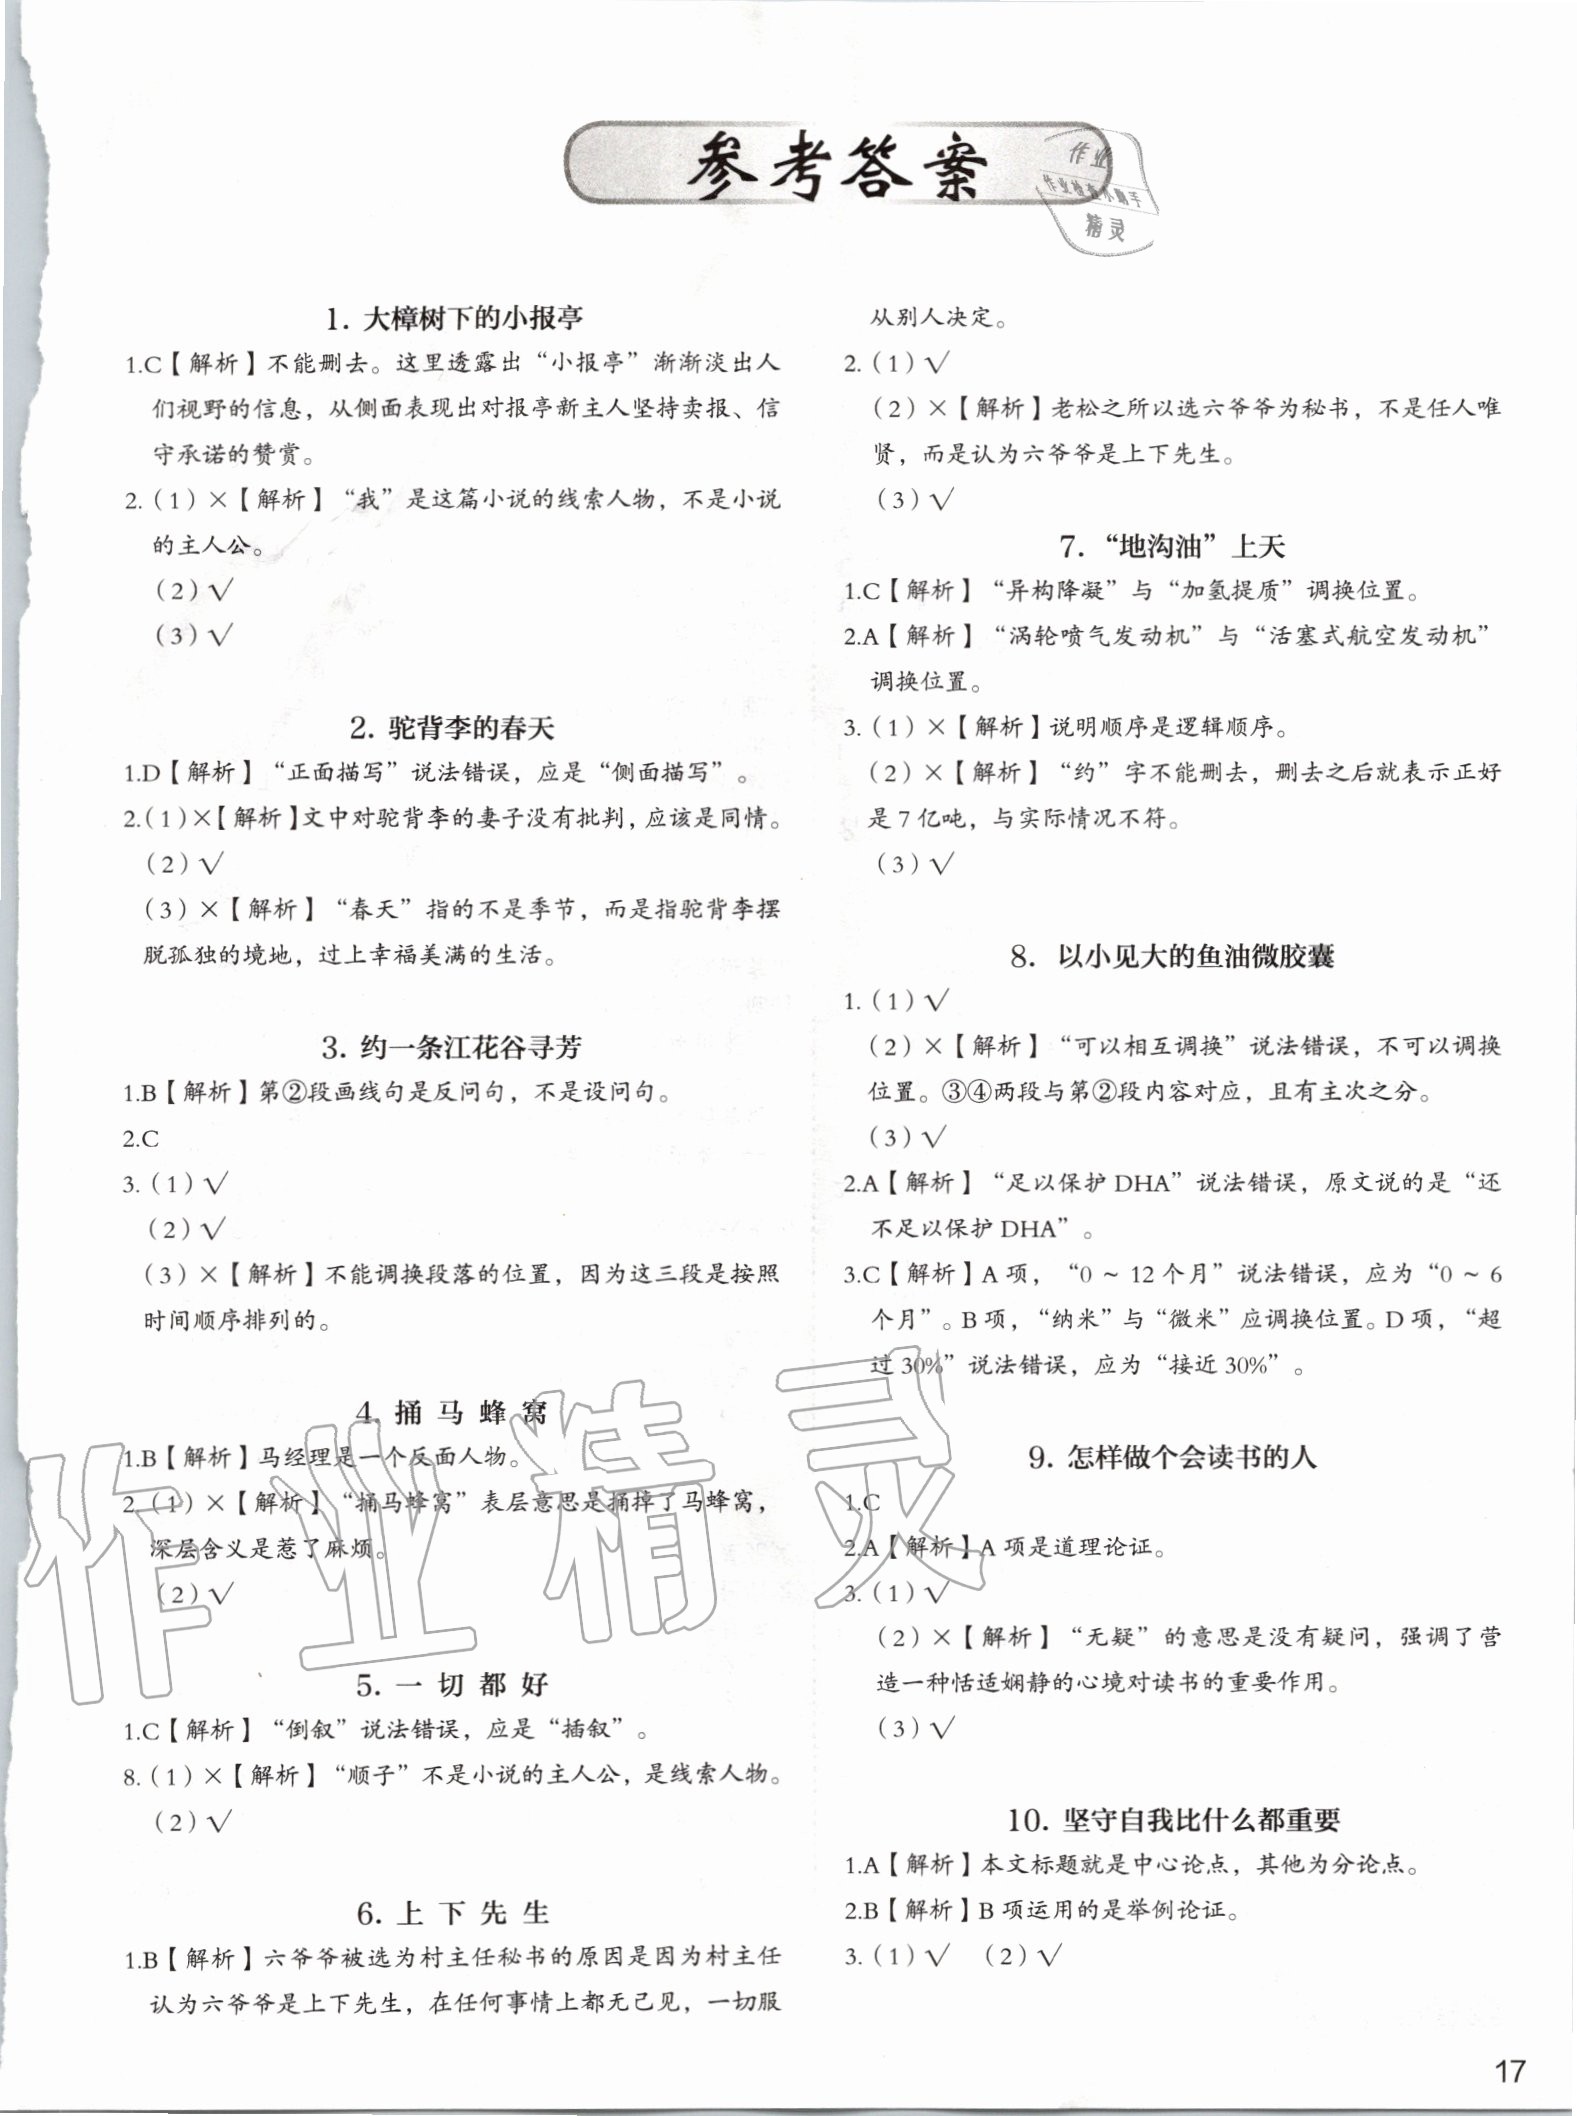 参考答案
作业
作业检查小助手
精灵
1. 大樟树下的小报亭
1.C【解析】不能删去。这里透露出“小报亭”渐渐淡出人
们视野的信息，从侧面表现出对报亭新主人坚持卖报、信
守承诺的赞赏。
2.（1）×【解析】“我”是这篇小说的线索人物，不是小说
的主人公。
（2）√
（3）√
2. 驼背李的春天
1.D【解析】“正面描写”说法错误，应是“侧面描写”。
2.（1）×【解析】文中对驼背李的妻子没有批判，应该是同情。
（2）√
（3）×【解析】“春天”指的不是季节，而是指驼背李摆
脱孤独的境地，过上幸福美满的生活。
3. 约一条江花谷寻芳
1.B【解析】第②段画线句是反问句，不是设问句。
2.C
3.（1）√
（2）√
（3）×【解析】不能调换段落的位置，因为这三段是按照
时间顺序排列的。
4. 捅马蜂窝
1.B【解析】马经理是一个反面人物。
2.（1）×【解析】“捅马蜂窝”表层意思是捅掉了马蜂窝，
深层含义是惹了麻烦。
（2）√
5. 一切都好
1.C【解析】“倒叙”说法错误，应是“插叙”。
8.（1）×【解析】“顺子”不是小说的主人公，是线索人物。
（2）√
6. 上下先生
1.B【解析】六爷爷被选为村主任秘书的原因是因为村主任
认为六爷爷是上下先生，在任何事情上都无己见，一切服
从别人决定。
2.（1）√
（2）×【解析】老松之所以选六爷爷为秘书，不是任人唯
贤，而是认为六爷爷是上下先生。
（3）√
7. “地沟油”上天
1.C【解析】“异构降凝”与“加氢提质”调换位置。
2.A【解析】“涡轮喷气发动机”与“活塞式航空发动机”
调换位置。
3.（1）×【解析】说明顺序是逻辑顺序。
（2）×【解析】“约”字不能删去，删去之后就表示正好
是 7 亿吨，与实际情况不符。
（3）√
8. 以小见大的鱼油微胶囊
1.（1）√
（2）×【解析】“可以相互调换”说法错误，不可以调换
位置。③④两段与第②段内容对应，且有主次之分。
（3）√
2.A【解析】“足以保护 DHA”说法错误，原文说的是“还
不足以保护 DHA”。
3.C【解析】A 项，“0 ～ 12 个月”说法错误，应为“0 ～ 6
个月”。B 项，“纳米”与“微米”应调换位置。D 项，“超
过 30%”说法错误，应为“接近 30%”。
9. 怎样做个会读书的人
1.C
2.A【解析】A 项是道理论证。
3.（1）√
（2）×【解析】“无疑”的意思是没有疑问，强调了营
造一种恬适娴静的心境对读书的重要作用。
（3）√
10. 坚守自我比什么都重要
1.A【解析】本文标题就是中心论点，其他为分论点。
2.B【解析】B 项运用的是举例论证。
3.（1）√ （2）√
作业精灵
17